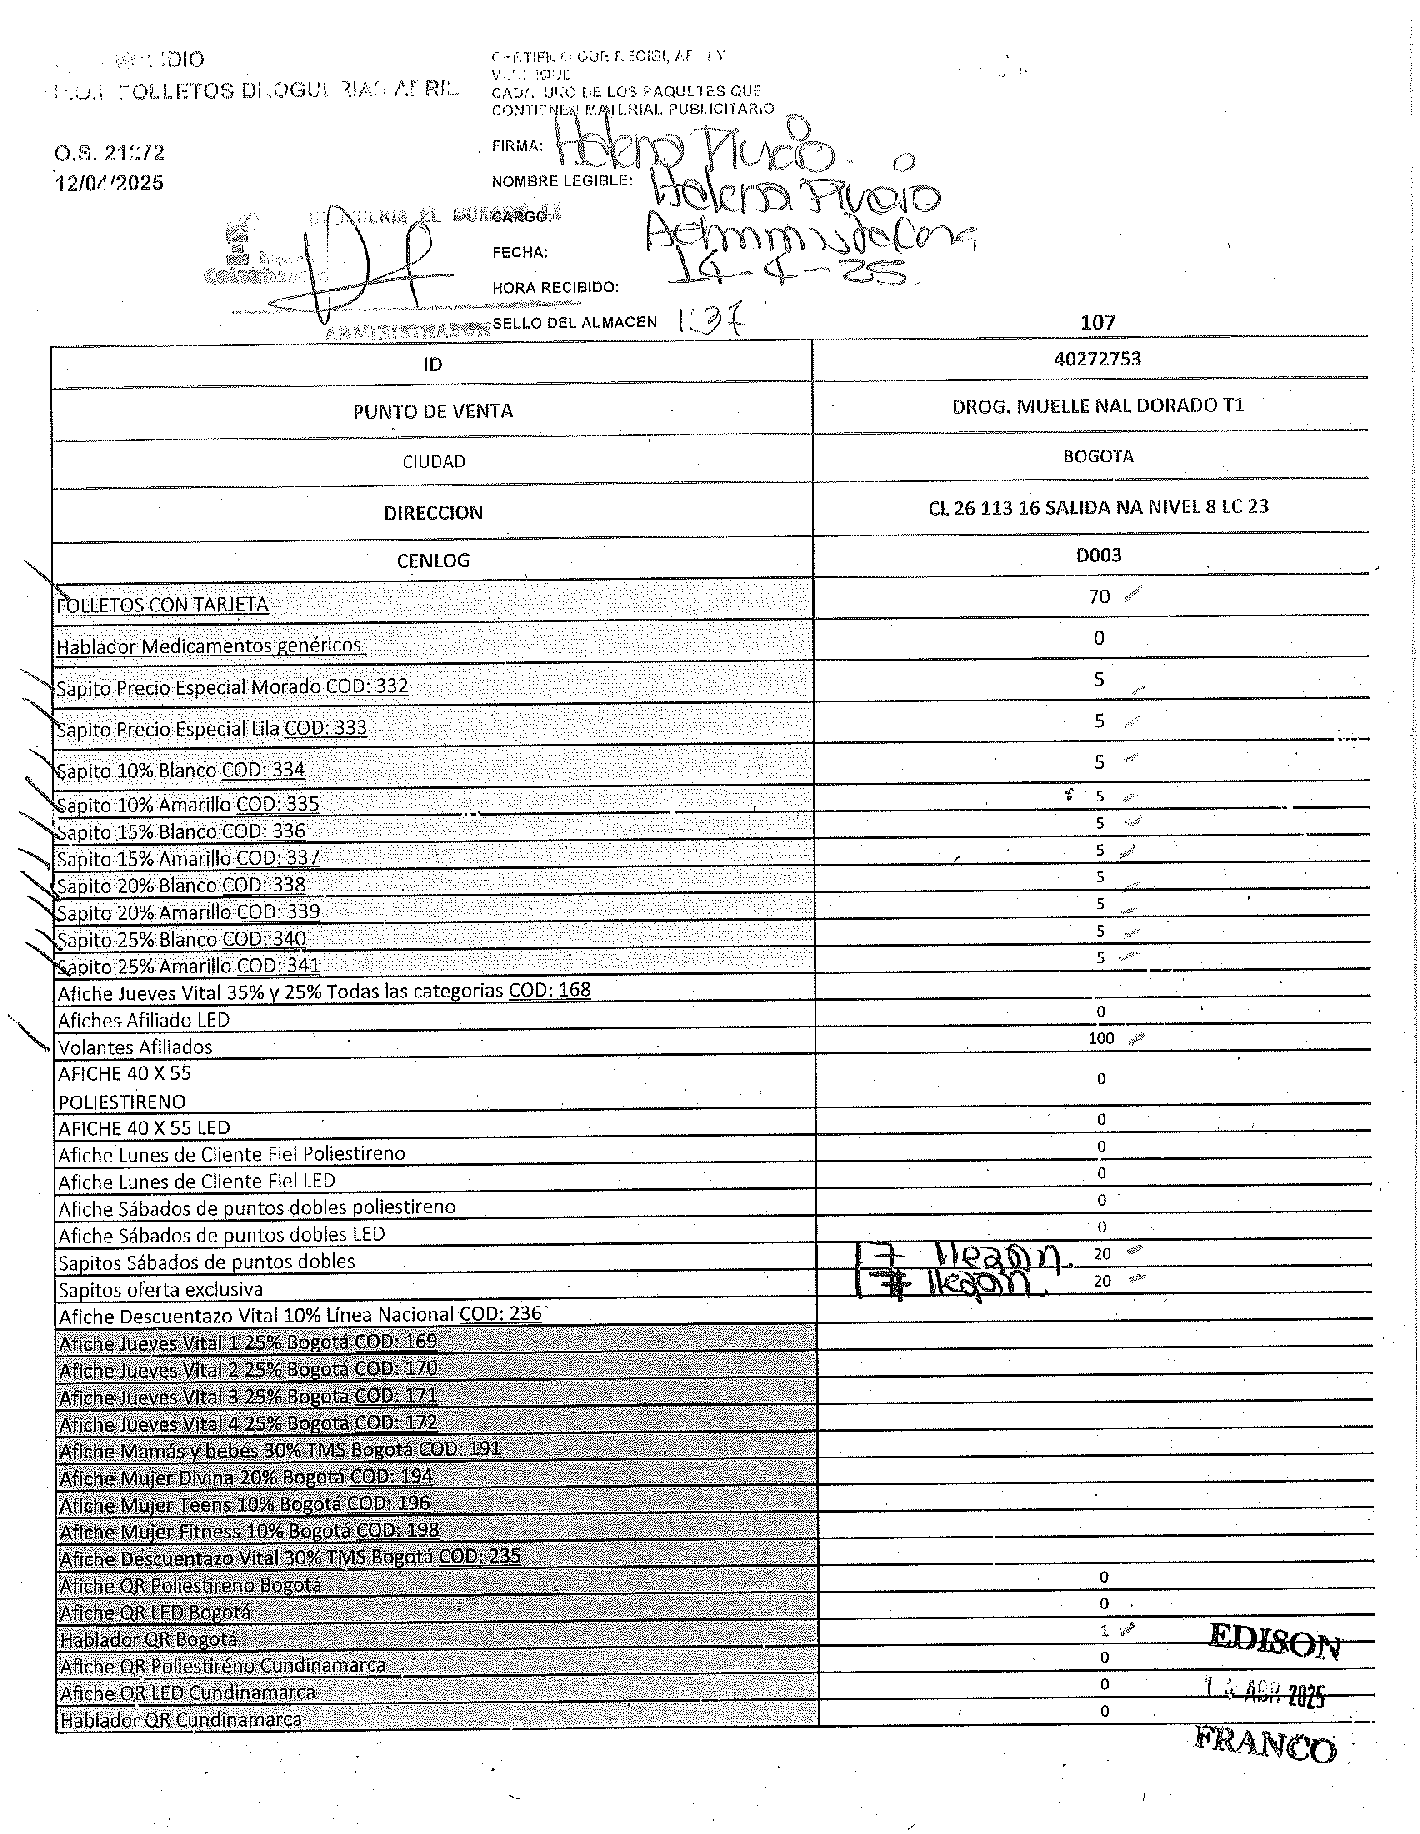 FOLLETOS DROGUERIAS ABRIL
O.S. 21272
12/04/2025
CERTIFICO QUE RECIBI, ABRI Y
VERIFIQUE
CADA UNO DE LOS PAQUETES QUE
CONTIENEN MATERIAL PUBLICITARIO
FIRMA: Helena
NOMBRE LEGIBLE: Helena
CARGO: Administradora
FECHA: 14-4-25
HORA RECIBIDO:
SELLO DEL ALMACEN 1:37
ADMINISTRADOR
107
ID 40272753
PUNTO DE VENTA DROG. MUELLE NAL DORADO T1
CIUDAD BOGOTA
DIRECCION CL 26 113 16 SALIDA NA NIVEL 8 LC 23
CENLOG D003
FOLLETOS CON TARJETA 70
Hablador Medicamentos genéricos 0
Sapito Precio Especial Morado COD: 332 5
Sapito Precio Especial Lila COD: 333 5
Sapito 10% Blanco COD: 334 5
Sapito 10% Amarillo COD: 335 5
Sapito 15% Blanco COD: 336 5
Sapito 15% Amarillo COD: 337 5
Sapito 20% Blanco COD: 338 5
Sapito 20% Amarillo COD: 339 5
Sapito 25% Blanco COD: 340 5
Sapito 25% Amarillo COD: 341 5
Afiche Jueves Vital 35% y 25% Todas las categorias COD: 168
Afiches Afiliado LED 0
Volantes Afiliados 100
AFICHE 40 X 55
POLIESTIRENO 0
AFICHE 40 X 55 LED 0
Afiche Lunes de Cliente Fiel Poliestireno 0
Afiche Lunes de Cliente Fiel LED 0
Afiche Sábados de puntos dobles poliestireno 0
Afiche Sábados de puntos dobles LED 0
Sapitos Sábados de puntos dobles 17 llegan. 20
Sapitos oferta exclusiva 17 llegan 20
Afiche Descuentazo Vital 10% Línea Nacional COD: 236
Afiche Jueves Vital 1 25% Bogotá COD: 169
Afiche Jueves Vital 2 25% Bogotá COD: 170
Afiche Jueves Vital 3 25% Bogotá COD: 171
Afiche Jueves Vital 4 25% Bogotá COD: 172
Afiche Mamás y bebes 30% TMS Bogotá COD: 191
Afiche Mujer Divina 20% Bogotá COD: 194
Afiche Mujer Teens 10% Bogotá COD: 196
Afiche Mujer Fitness 10% Bogotá COD: 198
Afiche Descuentazo Vital 30% TMS Bogotá COD: 235
Afiche QR Poliestireno Bogotá 0
Afiche QR LED Bogotá 0
Hablador QR Bogotá 1
Afiche QR Poliestireno Cundinamarca 0
Afiche QR LED Cundinamarca 0
Hablador QR Cundinamarca 0
EDISON
14 ABR 2025
FRANCO